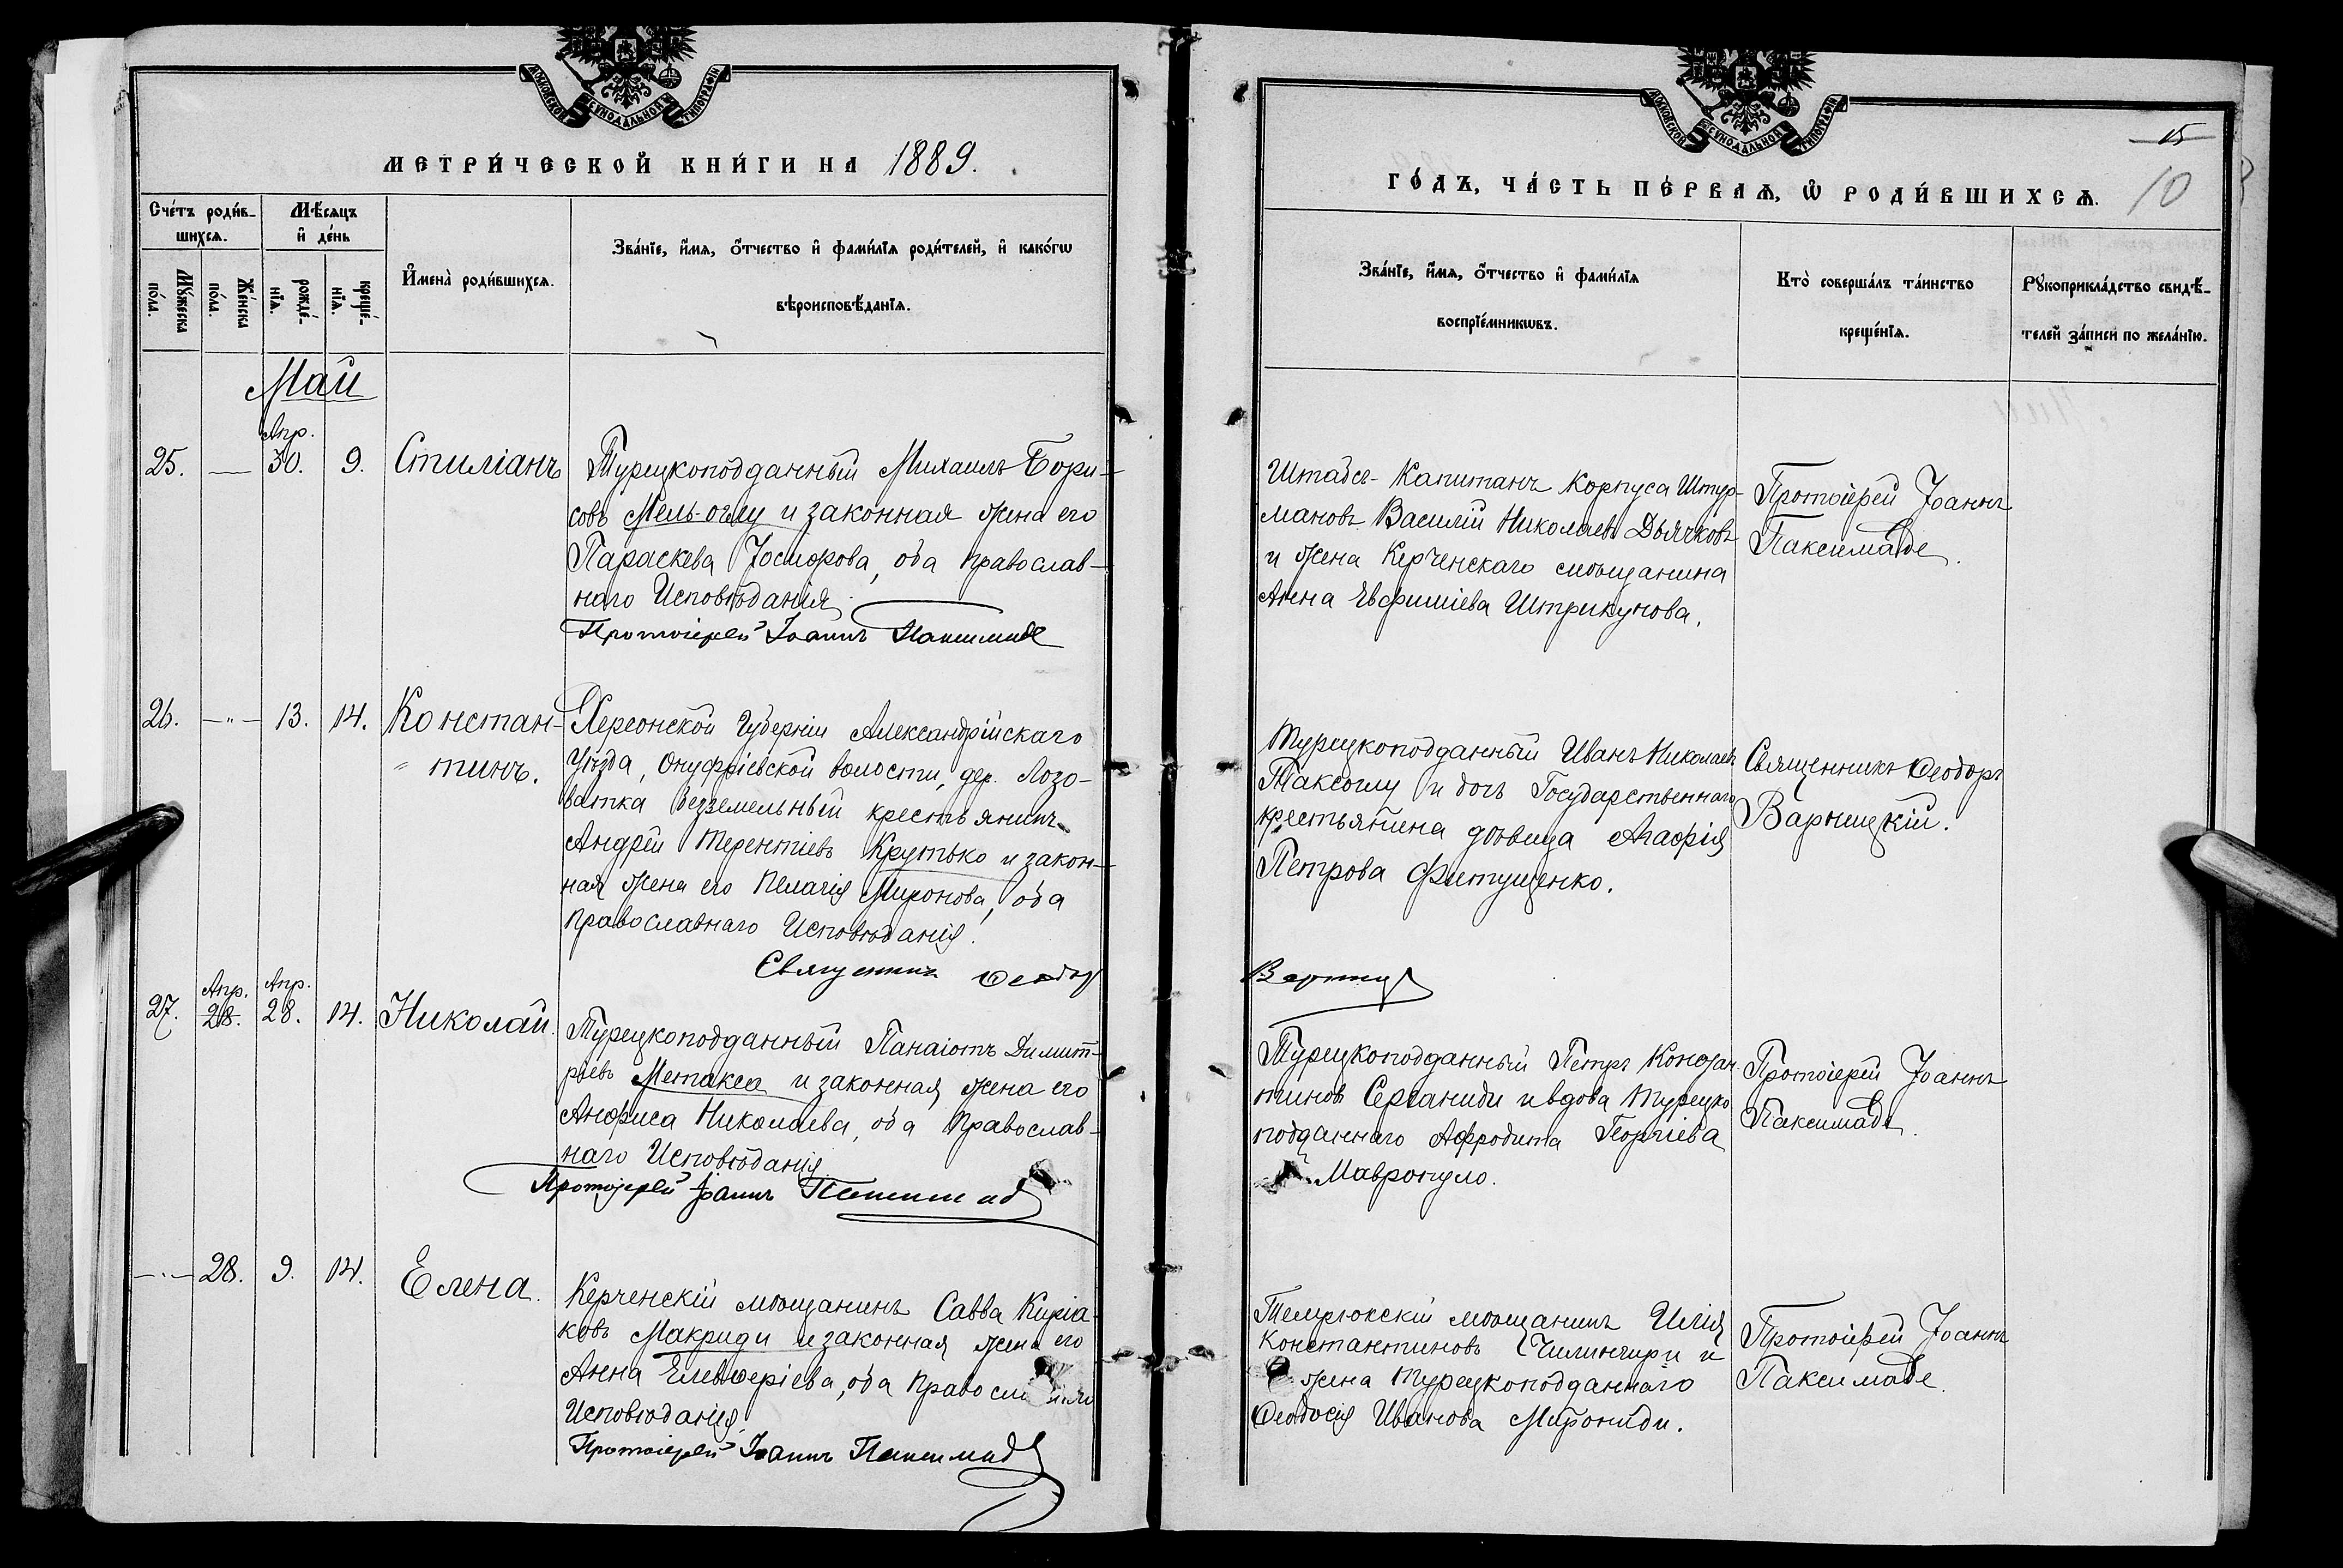 МОСКОВСКОЙ СѴНОДАЛЬНОЙ ТИПОГРАФІИ
МЕТРИ́ЧЕСКОЙ КНИ́ГИ НА 1889.
Сче́тъ роди́в-
шихсѧ.
Мѣ́сѧцъ
и҆ де́нь
Мꙋ́жеска
по́ла.
Же́нска
по́ла.
рожде́-
нїѧ.
креще́-
нїѧ.
И҆мена̀ роди́вшихсѧ.
Зва́нїе, и҆́мѧ, ѻ҆́тчество и҆ фами́лїѧ роди́телей, и҆ како́гѡ
вѣроисповѣ́данїѧ.
Май
25. — Апр. 30. 9. Стиліанъ
Турецкоподданный Михаилъ Бори-
совъ Мель-оглу и законная жена его
Параскева Іосифова, оба православ-
наго Исповѣданія
Протоіерей Іоаннъ Паксимаде
26. —"— 13. 14. Констан-
тинъ.
Херсонской Губерніи Александрійскаго
Уѣзда, Онуфріевской волости, дер. Лозо-
ватка безземельный крестьянинъ
Андрей Терентіевъ Крутько и закон-
ная жена его Пелагія Миронова, оба
православнаго Исповѣданія.
Священникъ Ѳеодоръ
27. Апр. 28. Апр. 28. 14. Николай.
Турецкоподданный Панаіотъ Димит-
ріевъ Метакса и законная жена его
Анфиса Николаева, оба Православ-
наго Исповѣданія
Протоіерей Іоаннъ Паксимаде
—"— 28. 9. 14. Елена.
Керченскій мѣщанинъ Савва Киріа-
ковъ Макриди и законная жена его
Анна Елевѳеріева, оба Православнаго
Исповѣданія
Протоіерей Іоаннъ Паксимаде
МОСКОВСКОЙ СѴНОДАЛЬНОЙ ТИПОГРАФІИ
15
10
ГО́ДЪ, ЧА́СТЬ ПЕ́РВАѦ, Ѡ҆ РОДИ́ВШИХСѦ.
Зва́нїе, и҆́мѧ, ѻ҆́тчество и҆ фами́лїѧ
воспрїе́мникѡвъ.
Кто̀ соверша́лъ та́инство
креще́нїѧ.
Рꙋкоприкла́дство свидѣ́-
телей за́писи по жела́нїю.
Штабсъ-Капитанъ Корпуса Штур-
мановъ Василій Николаевъ Дьячковъ
и жена Керченскаго мѣщанина
Анна Евфиміева Штрикунова.
Протоіерей Іоаннъ
Паксимаде.
Турецкоподданный Иванъ Николаевъ
Таксоглу и дочь Государственнаго
крестьянина дѣвица Агафія
Петрова Фитущенко.
Священникъ Ѳеодоръ
Варницкій.
Варниц
Турецкоподданный Петръ Констан-
тиновъ Серганиди и вдова Турецко
подданнаго Афродита Георгіева
Мавропуло.
Протоіерей Іоаннъ
Паксимаде.
Темрюкскій мѣщанинъ Илія
Константиновъ Чилингири и
жена Турецкоподданнаго
Ѳеодосія Иванова Мирониди.
Протоіерей Іоаннъ
Паксимаде.